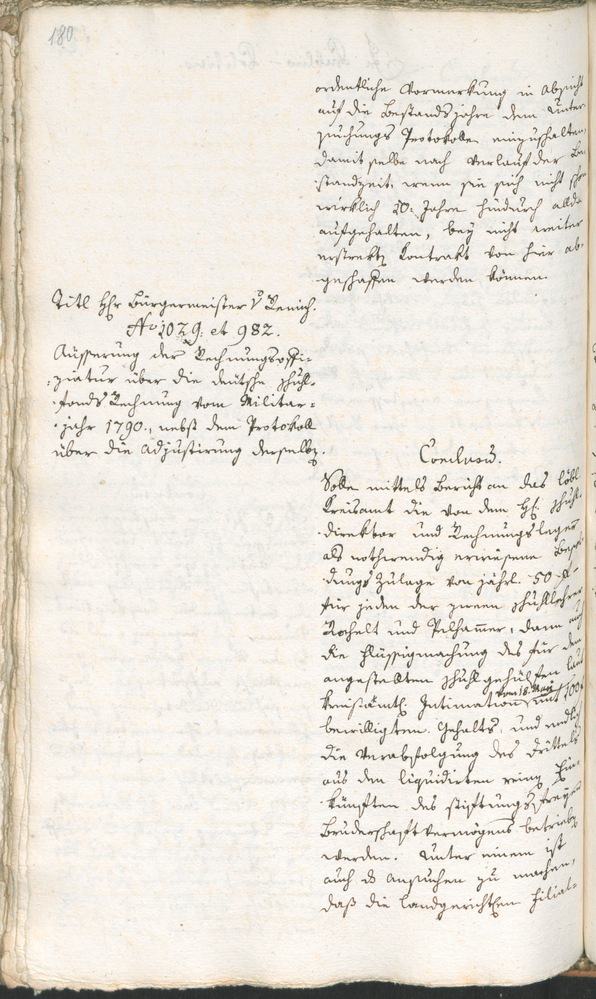 180.
ordentliche Vormerkung in Absicht
auf die Bestandsjahre dem Unter
suchungs Protokolle einzuschalten,
damit selbe nach Verlauf der Be
standzeit, wenn sie sich nicht schon
wirklich 10. Jahre hindurch allda
aufgehalten, bey nicht weiter
erstrekt Kontrakt von hier ab-
geschaffen werden können.
Titl Hr Bürgermeister v
No 1029. et 982.
Äusserung der Rechnungsoffi-
ziatur über die deutsche Schul-
fonds Rechnung vom Militar-
jahr 1790., nebst dem Protokoll
über die Adjustirung derselben.
Conclusum.
Solle mittels Bericht an das löbl
Kreisamt die von dem Hr. Schul-
direktor und Rechnungsleger
als nothwendig erwiesene
dungs Zulage von jährl. 50 fl
für jeden der zween Schullehrer
und Pilhamer, dann auch
die Flüssigmachung des für den
angestellten Schulgehülfen laut
kreisämtl. Intimation vom 18. May mit 100 f
bewilligten Gehalts, und endlich
die Verabfolgung des Drittels
aus den liquidirten reinen Ein-
künften des stiftungsfreyen
Bruderschaftvermögens betrieben
werden. Unter einem ist
auch das Ansuchen zu machen,
daß die Landgerichtlichen Filial-